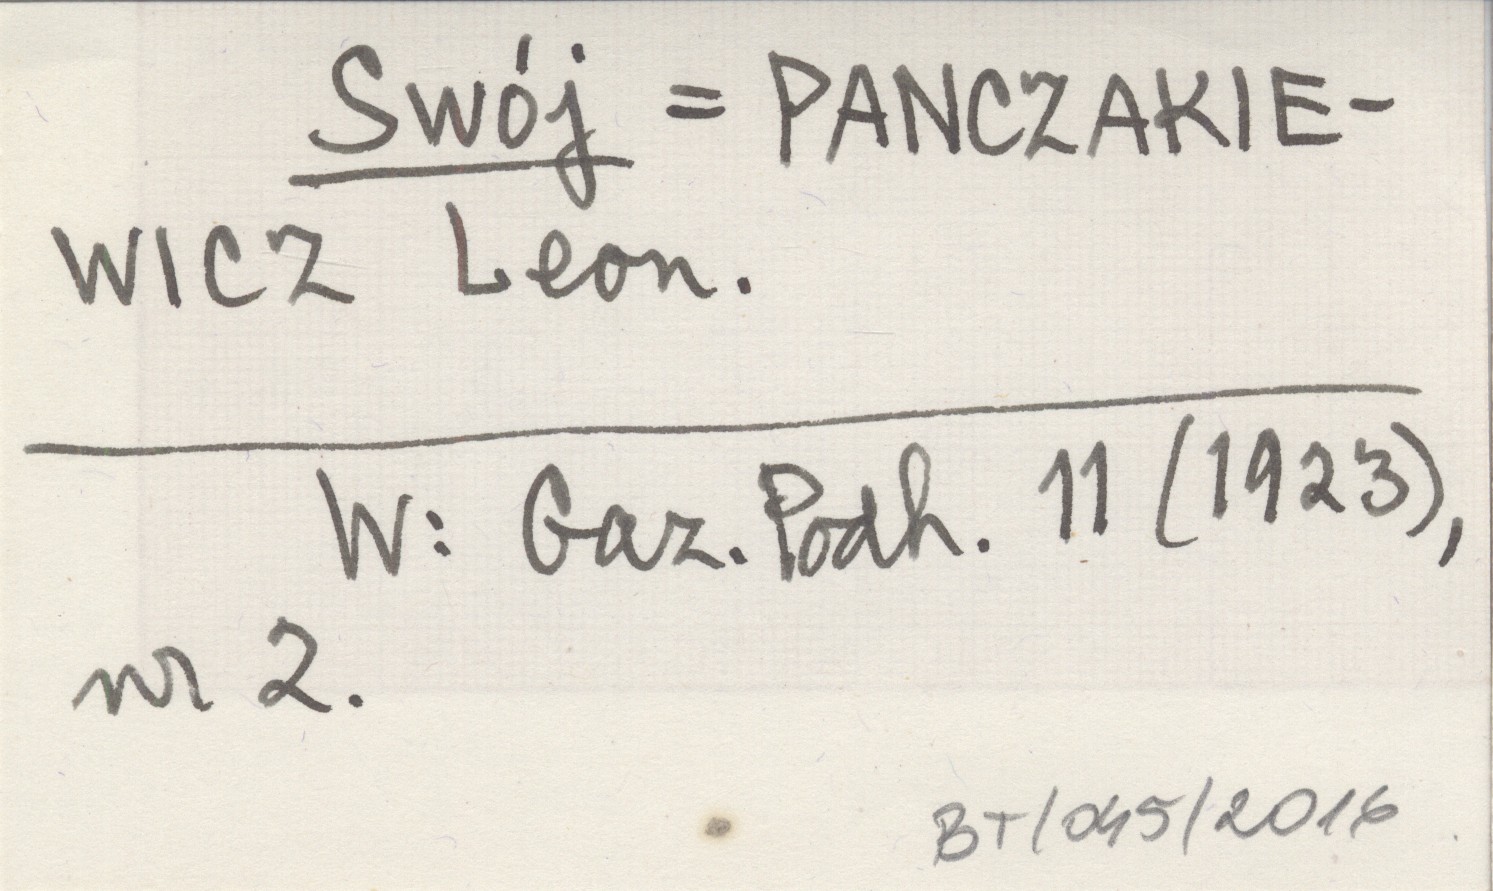 Swój = PANCZAKIE-
WICZ Leon.
W: Gaz. Podh. 11 (1923),
nr 2.
BT/045/2016